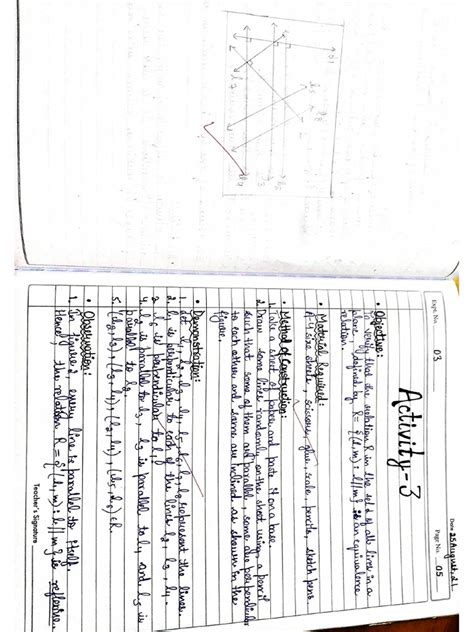 Date 25 August, 21
Expt. No. 03
Page No. 05
Activity-3
• Objective:
To verify that the relation R in the set of all lines in a
plane, defined by R = {(l,m): l||m} is an equivalence
relation.
• Material Required:
A-4 size sheets, scissors, glue, scale, pencils, sketch pens.
• Method of Construction:
1. Take a sheet of paper and paste it on a base.
2. Draw some lines randomly on the sheet using a pencil
such that some of them are parallel, some are perpendicular
to each other and some are inclined as shown in the
figure.
• Demonstration:
1. Let l1, l2, l3, l4, l5, l6, l7, l8 represent the lines.
2. l1 is perpendicular to each of the lines l2, l3, l4.
3. l6 is perpendicular to l7.
4. l2 is parallel to l3, l3 is parallel to l4 and l5 is
parallel to l8.
5. (l2, l3), (l3, l4), (l2, l4), (l5, l8) ∈ R
• Observation:
1. In figure 2, every line is parallel to itself
Hence, the relation R = {(l,m): l||m} is reflexive.
Teacher's Signature